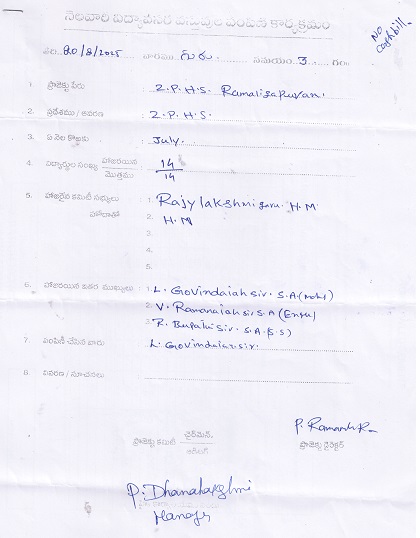 నెలవారి విద్యావసర వస్తువుల పంపిణీ కార్యక్రమం
No
cashbill.
తేది. 20/8/2025 వారము గురు సమయం. 3 గం.
1. ప్రాజెక్టు పేరు : Z.P.H.S. Ramalingapuram.
2. ప్రదేశము / వివరణ : Z.P.H.S.
3. ఏ నెల కొఱకు : July.
4. విద్యార్థుల సంఖ్య హాజరయిన / మొత్తము : 14 / 14
5. హాజరైన కమిటీ సభ్యులు హోదాతో : 1. Rajylakshmi garu. H.M
2. H.M
3.
4.
5.
6. హాజరయిన ఇతర ముఖ్యులు : 1. L. Govindaiah sir. S.A
2. V. Ramanaiah sir S.A
3. R. Bupathi sir. S.A.(S.S)
7. పంపిణీ చేసిన వారు : L. Govindaiah sir.
8. వివరణ / సూచనలు :
ప్రాజెక్టు కమిటీ ఛైర్మెన్.
P. Ramesh
ప్రాజెక్టు డైరెక్టర్
P. Dhanalakshmi
Manager